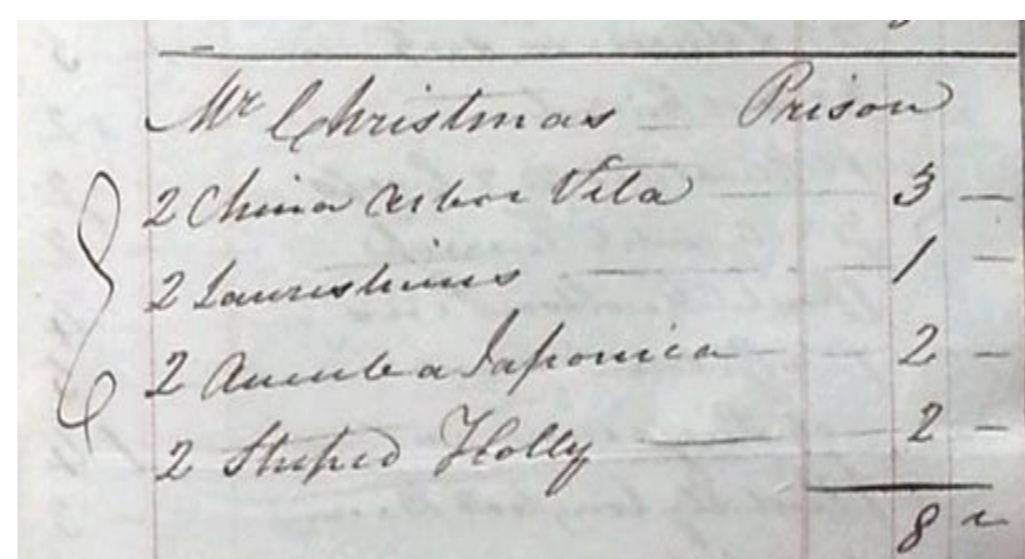 Mr Christmas — Prison
2 China Arbor Vita — 3 —
2 Laurestinus — 1 —
2 Aucuba Japonica — 2 —
2 Striped Holly — 2 —
8 "